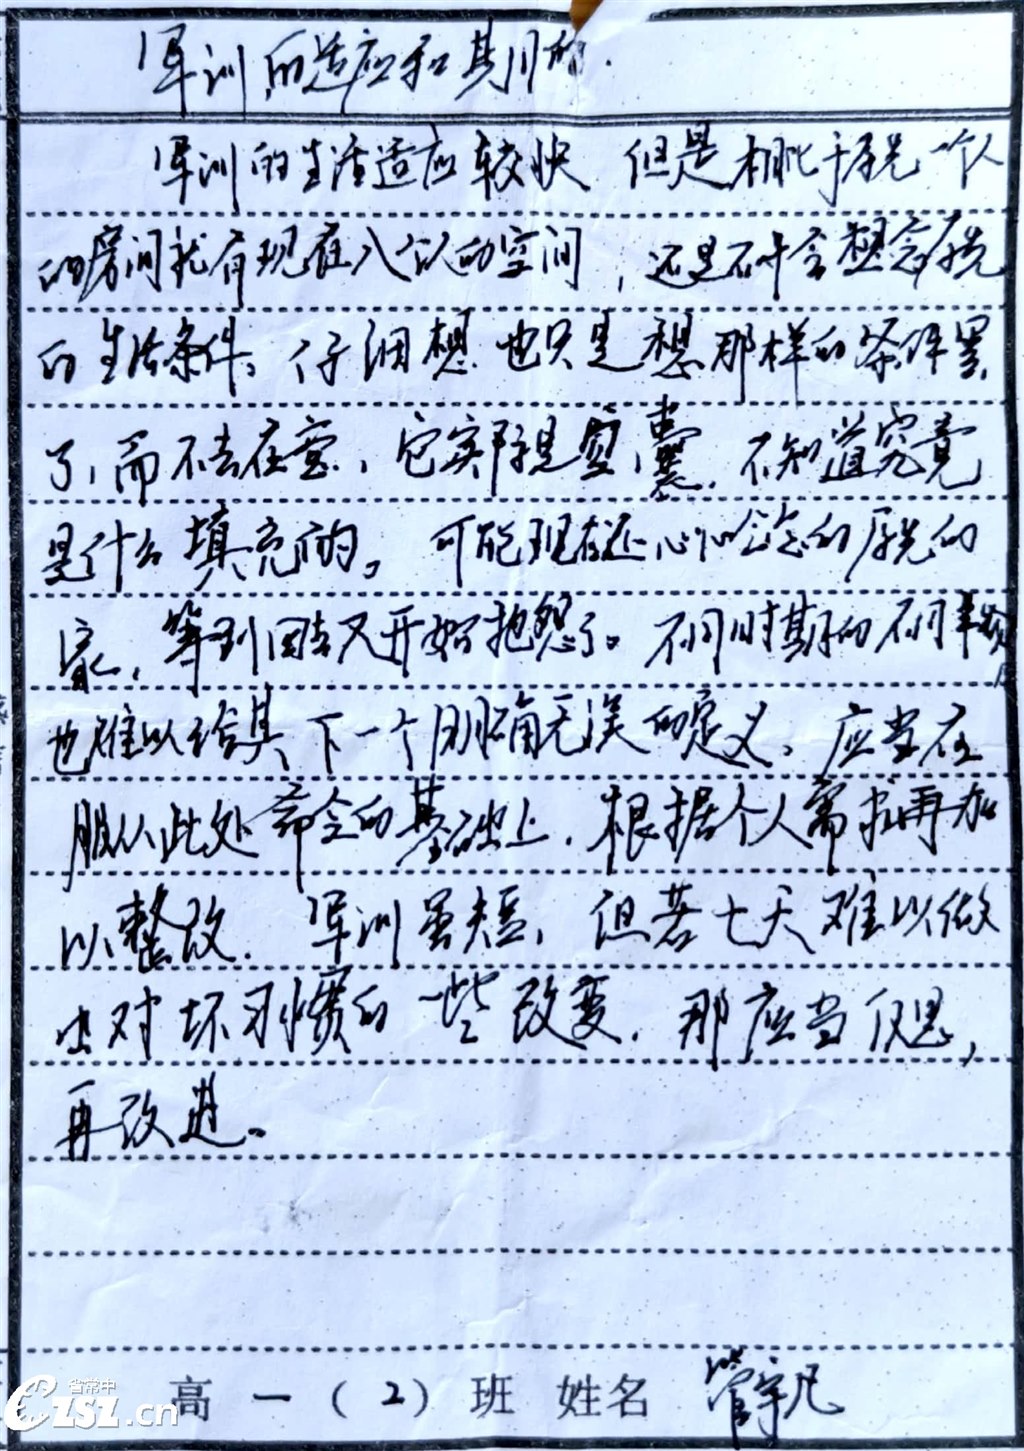 军训的适应和其
军训的生活适应较快 但是相比于原先一个人
的房间就有现在八个人的空间，还是不时会想念原先
的生活条件。仔细想 也只是想那样的条件罢
了，而不去在意，它实际是 囊，不知道究竟
是什么填充的。可能现在还心心念念的原先的
家，等到回去又开始抱怨了。不同时期的不同
也难以给其下一个明确无误的定义。应当在
服从此处命令的基础上，根据个人需求再加
以整改。军训虽短，但若七天难以做
出对坏习惯的一些改变，那应当反思，
再改进。
高一（2）班 姓名 管宇凡
省常中
CZSZ.cn